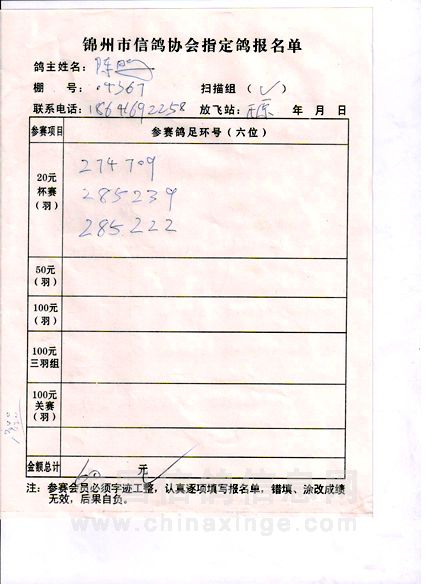 锦州市信鸽协会指定鸽报名单
鸽主姓名：陈
棚 号：04567 扫描组（✓）
联系电话：18641692258 放飞站： 年 月 日
参赛项目 参赛鸽足环号（六位）
20元 杯赛 （羽）
274709
285239
285222
50元 （羽）
100元 （羽）
100元 三羽组
100元 关赛 （羽）
金额总计 60 元
注：参赛会员必须字迹工整，认真逐项填写报名单，错填、涂改成绩
无效，后果自负。
www.chinaxinge.com